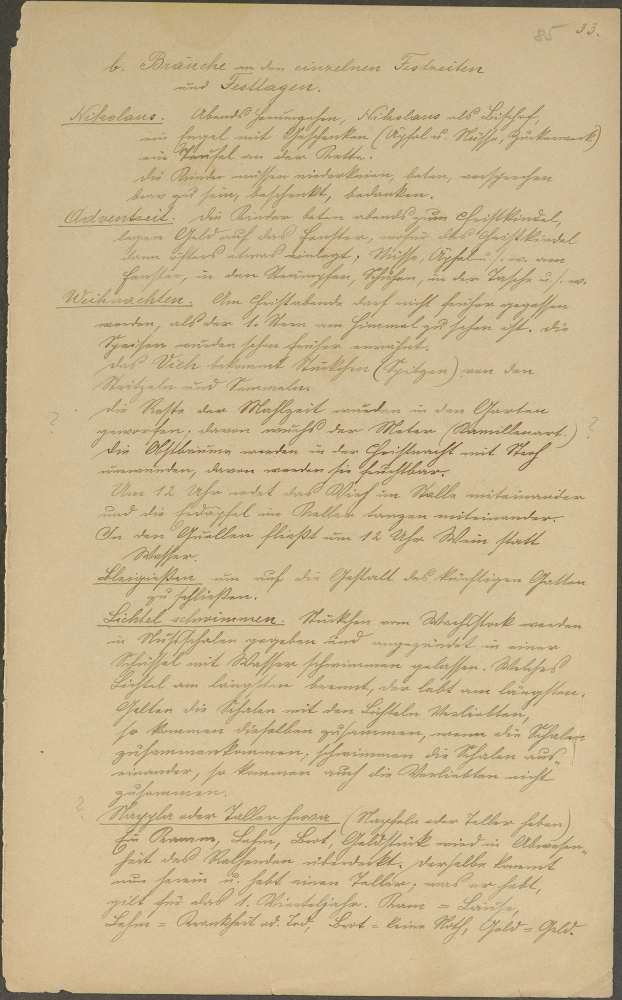 85 33.
b. Bräuche an den einzelnen Festzeiten
und Festtagen.
Nikolaus: Abends herumgehen, Nikolaus als Bischof,
ein Engel mit Geschenken (Äpfel u. Nüsse, Zuckerwerk)
ein Teufel an der Kette.
Die Kinder müssen niederknien, beten, versprechen
brav zu sein, beschenkt, bedanken.
Adventzeit: Die Kinder beten abends zum Christkindel,
legen Geld auf das Fenster, wofür das Christkindel
dann öfters etwas einlegt, Nüsse, Äpfel u. s. w. am
Fenster, in den Strümpfen, Schuhen, in der Tasche u. s. w.
Weihnachten: Am Christabende darf nicht früher gegessen
werden, als der 1. Stern am Himmel zu sehen ist. Die
Speisen wurden schon früher erwähnt.
Das Vieh bekommt Stückchen (Spitzen) von den
Stritzeln und Semmeln.
? Die Reste der Mahlzeit wurden in den Garten
geworfen; davon wuchs der Meter (Kamillenart.) ?
Die Obstbäume werden in der Christnacht mit Stroh
umwunden, davon werden sie fruchtbar.
Um 12 Uhr redet das Vieh im Stalle miteinander
und die Erdäpfel im Keller tanzen miteinander.
In den Quellen fließt um 12 Uhr Wein statt
Wasser.
Bleigießen um auf die Gestalt des künftigen Gatten
zu schließen.
Lichtel schwimmen. Stückchen vom Wachsstock werden
in Nußschalen gegeben und angezündet in einer
Schüssel mit Wasser schwimmen gelassen. Welches
Lichtel am längsten brennt, der lebt am längsten.
Gelten die Schalen mit den Lichteln Verliebten,
so kommen dieselben zusammen, wenn die Schalen
zusammenkommen; schwimmen die Schalen aus-
einander, so kommen auch die Verliebten nicht
zusammen.
? Nappla oder Taller heva (Napfeln oder Teller heben)
Ein Kamm, Lehm, Brot, Geldstück wird in Abwesen-
heit des Ratenden überdeckt. Derselbe kommt
nun herein u. hebt einen Teller; was er hebt,
gilt für das 1. Vierteljahr. Kam = Läuse,
Lehm = Krankheit od. Tod, Brot = keine Noth, Geld = Geld.